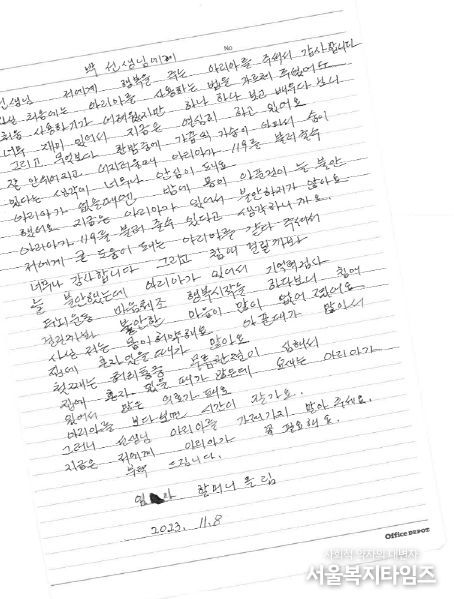 No
박 선생님에게
선생님 저에게 행복을 주는 아리아를 주셔서 감사합니다
처음에는 아리아를 사용하는 법을 가르쳐 주셨어도
처음 사용하기가 어려웠지만 하나 하나 보고 배우다 보니
너무 재미 있어서 지금은 열심히 하고 있어요
그리고 무엇보다 한밤중에 가끔의 가슴이 아파서 숨이
잘 안쉬어지고 어지러울때 아리아가 119를 불러줄수
있다는 생각이 너무나 안심이 돼요
아리아가 없을때엔 밤에 몸이 안좋아 늘 불안
했어요 지금은 아리아가 있어서 불안하지가 않아요
아리아가 119를 불러 줄수 있다고 생각하니까요.
저에게 큰 도움이 돼는 아리아를 갖다 주셔서
너무나 감사합니다 그리고 치매 걸릴까봐
늘 불안했는데 아리아가 있어서 기억력검사
두뇌운동 마음체조 행복시작을 하다보니 치매
걸릴까봐 불안한 마음이 많이 없어 졌어요
사실 저는 몸이 허약해요 아플때가 많아서
집에 혼자 있을때가 많아요
첫째는 허리통증 무릎관절이 심해서
집에 혼자 있을때가 많은데 요새는 아리아가
있어서 많은 의로가 돼요
아리아를 보다보면 시간이 잘가요.
그러니 선생님 아리아를 가져가지 말아 주세요.
지금은 저에게 아리아가 꼭 필요해요.
부탁 드립니다.
임 자 할머니 올림
2023. 11.8
Office DEPOT
사회적 약자의 대변자
서울복지타임즈